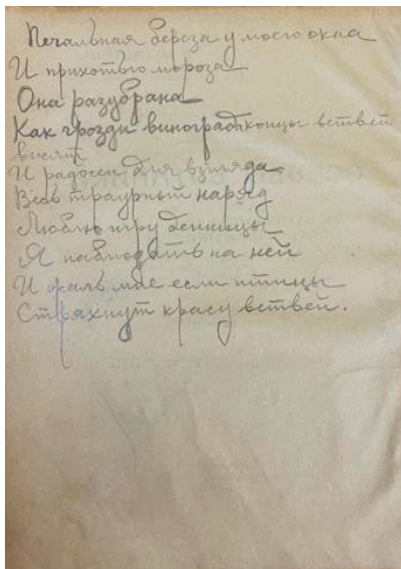 Печальная береза у моего окна
И прихотью мороза
Она разубрана
Как грозди виноградаконцы ветвей
висят
И радосен для взгляда
Весь траурный наряд
Люблю игру денницы
Я наблюдать на ней
И жаль мне если птицы
Стряхнут красу ветвей.